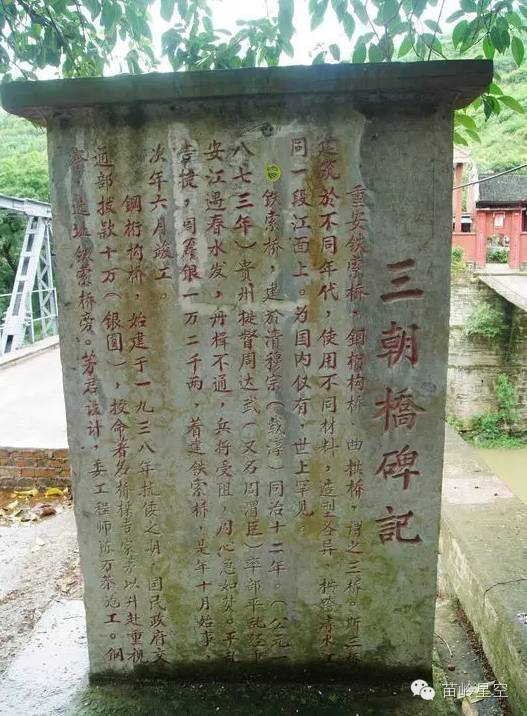 三朝橋碑記
重安铁索桥、鋼桁构桥、曲拱桥，谓之三桥。斯三桥
建筑於不同年代，使用不同材料，造型各异，横跨清水江
同一段江面上。为国内仅有，世上罕见。
铁索桥，建於清穆宗（载淳）同治十二年。（公元一
八七三年）贵州提督周达武（又名周渭臣）率部平乱至重
安江遇春水发，舟楫不通，兵将受阻，周心急如焚。平乱
告捷，周 银一万二千两，着建铁索桥，是年十月始事，
次年六月竣工。
鋼桁构桥，始建于一九三八年抗倭之期。国民政府交
通部拨款十万（银圆），授命者名桥樑 家茅以升赴重视
察，选址铁索桥旁。茅君设计，委工程师 万 施工。倜
苗岭星空